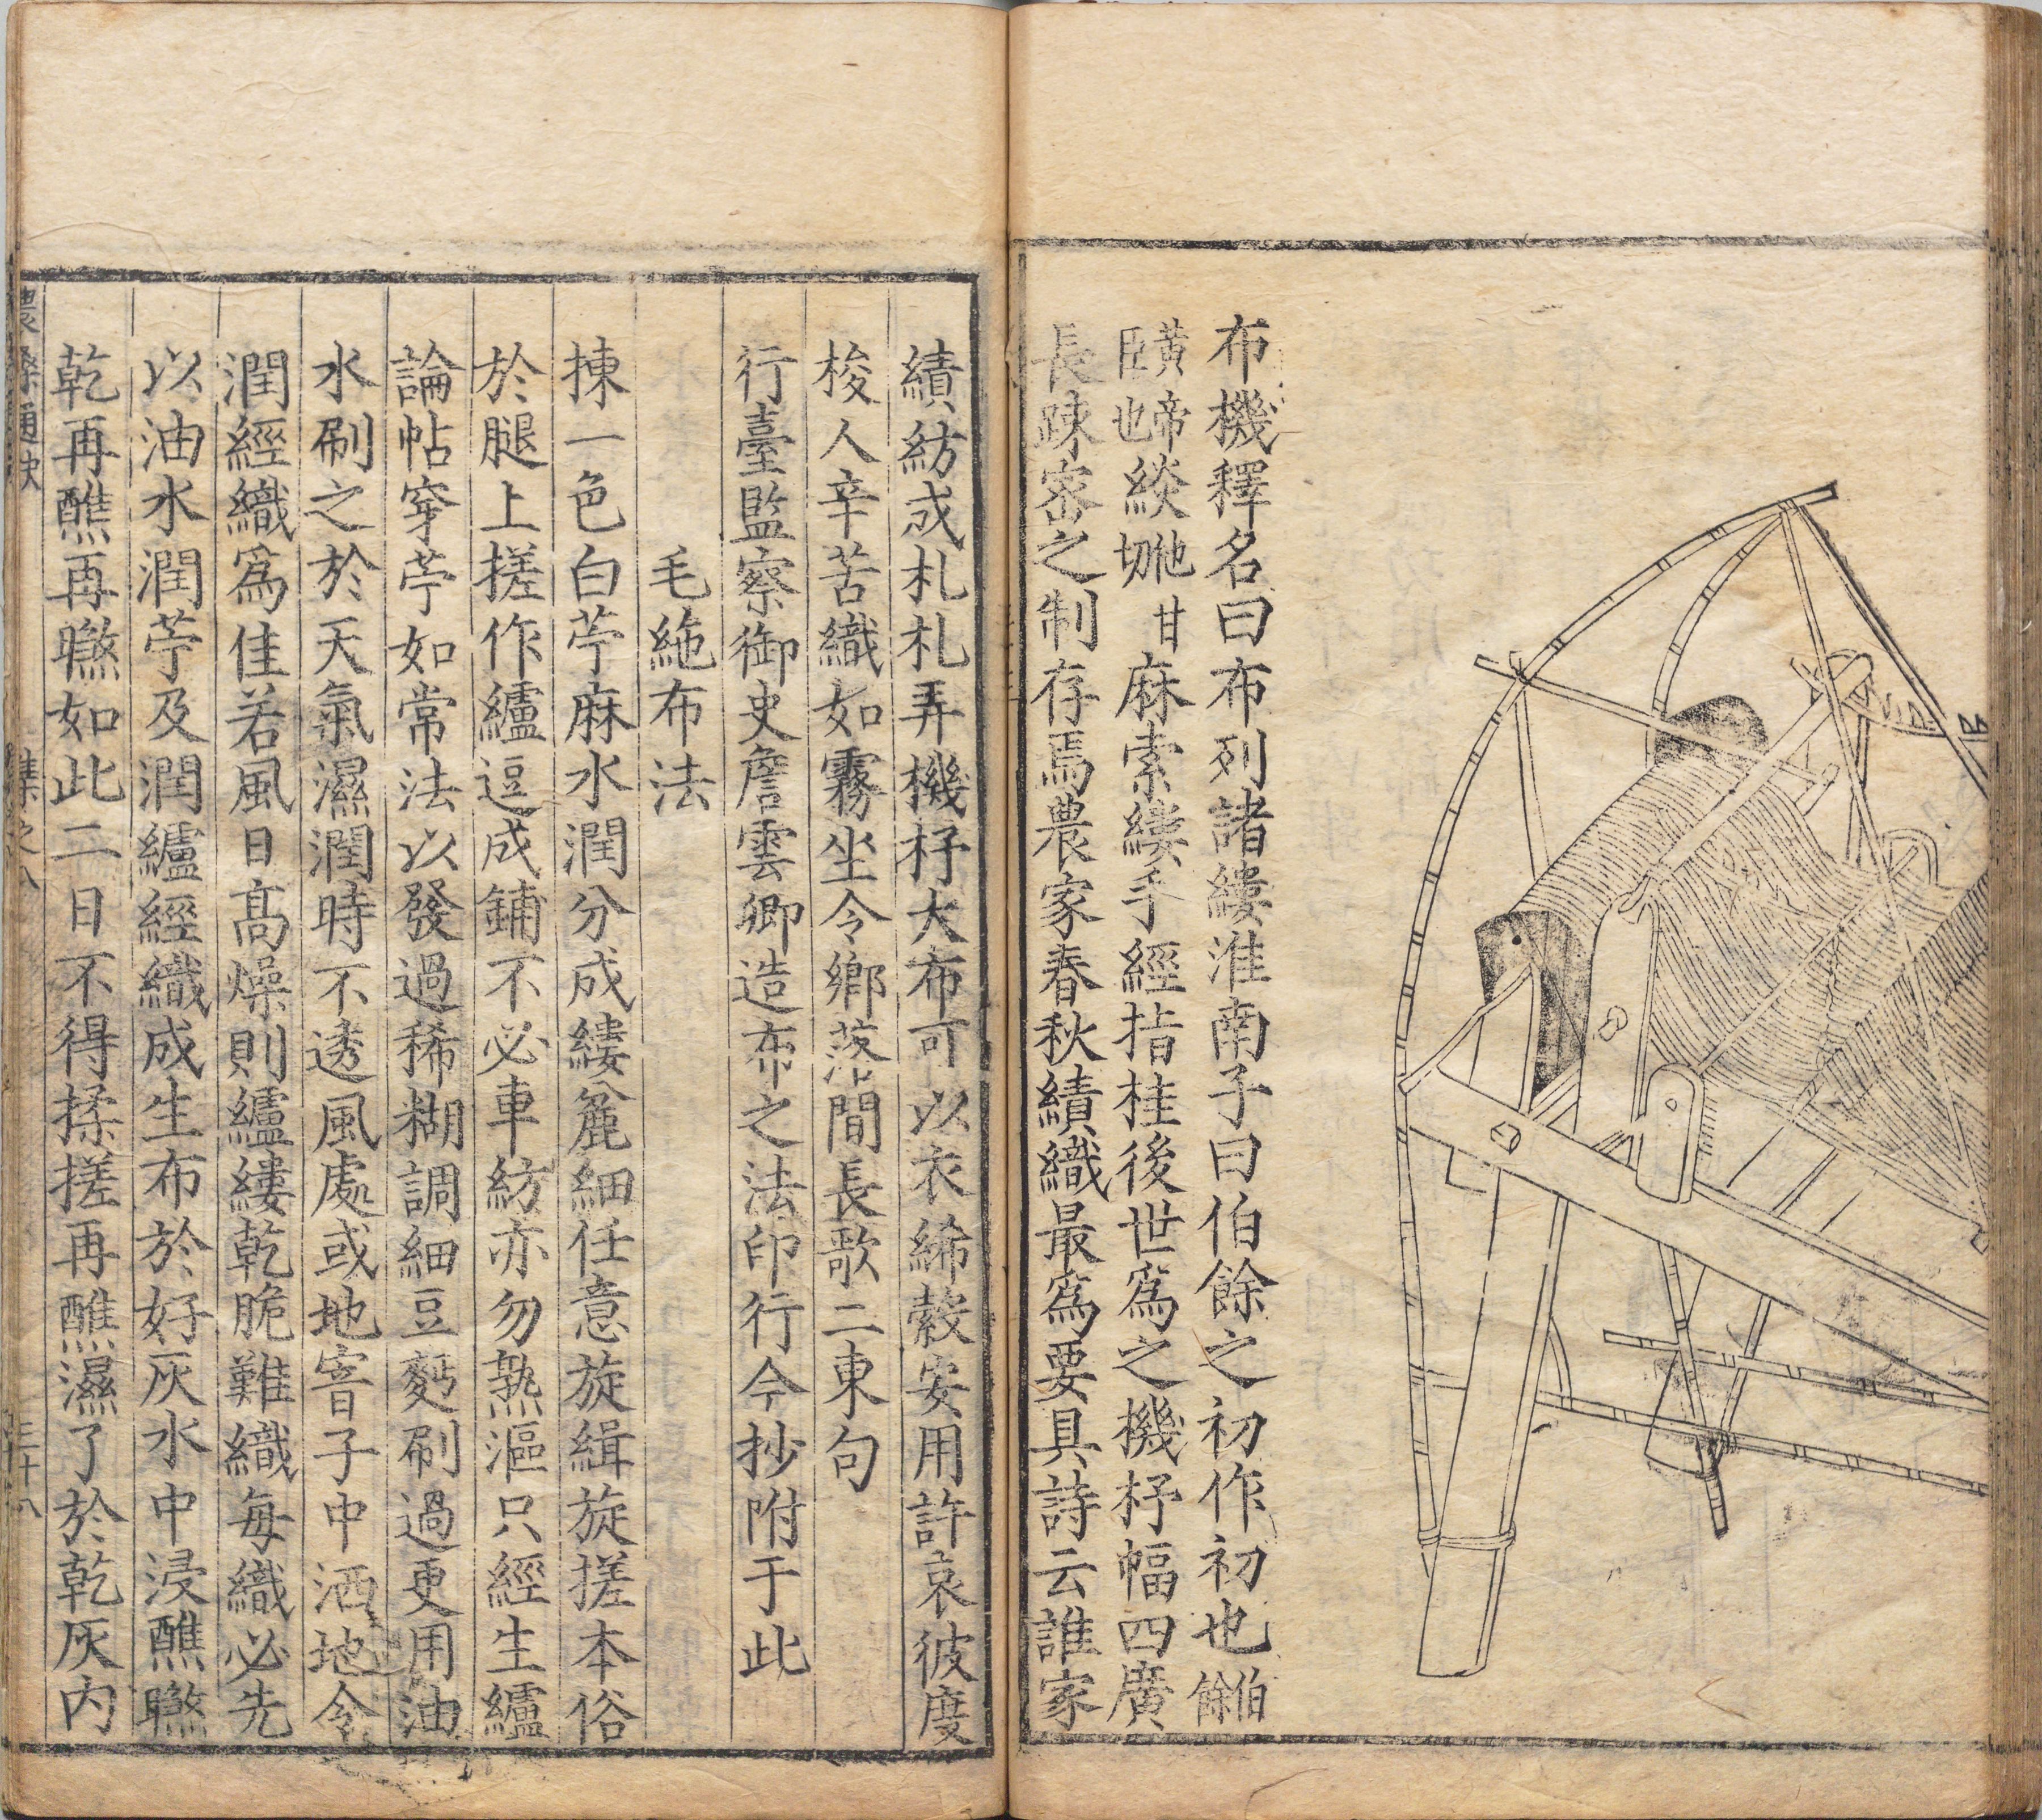 布機釋名曰布列諸縷淮南子曰伯餘之初作初也伯餘
黃帝臣也緂他甘切麻索縷手經指挂後世爲之機杼幅四廣
長疎密之制存焉農家春秋績織最爲要具詩云誰家
績紡成札札弄機杼大布可以衣絺縠安用許哀彼度
梭人辛苦織如霧坐令鄉落間長歌二東句
行臺監察御史詹雲卿造布之法印行今抄附于此
毛絁布法
揀一色白苧麻水潤分成縷麄細任意旋緝旋搓本俗
於腿上搓作纑逗成鋪不必車紡亦勿熟漚只經生纑
論帖穿苧如常法以發過稀糊調細豆麪刷過更用油
水刷之於天氣濕潤時不透風處或地窨子中洒地令
潤經織爲佳若風日高燥則纑縷乾脆難織每織必先
以油水潤苧及潤纑經織成生布於好灰水中浸蘸㬠
乾再蘸再㬠如此二日不得揉搓再蘸濕了於乾灰內
農桑通訣 集之八 三十八